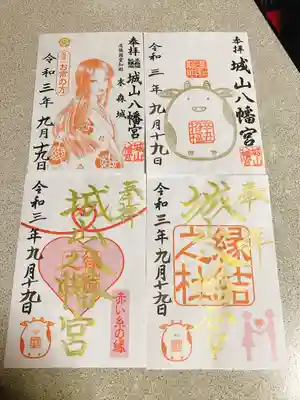 奉拝
城山八幡宮
末森城
お市の方
令和三年九月十九日
奉拝
城山八幡宮
令和三年九月十九日
奉拝
城山八幡宮
之縁
赤い糸の縁
令和三年九月十九日
奉拝
城山八幡宮
縁結之社
令和三年九月十九日